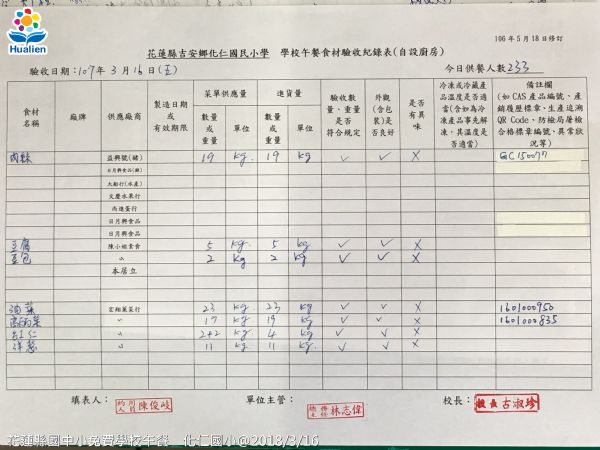 Hualien
106年5月18日修訂
花蓮縣吉安鄉化仁國民小學 學校午餐食材驗收紀錄表(自設廚房)
驗收日期:107年3月16日(五) 今日供餐人數233
食材名稱 廠牌 供應廠商 製造日期或有效期限 菜單供應量 進貨量 驗收數量、重量是否符合規定 外觀(含包裝)是否良好 是否有異味 冷凍或冷藏產品溫度是否適當(含如為冷凍產品事先解凍,其溫度是否適當) 備註欄(如CAS產品編號、產銷履歷標章、生產追溯QR Code、防檢局屠檢合格標章編號、異常狀況等)
數量或重量 單位 數量或重量 單位
肉絲 益興號(豬) 19 kg 19 kg ✓ ✓ X GC150077
日月興食品(雞)
大船行(水產)
文慶水果行
尚進蛋行
日月興食品
日月興食品
豆腐 陳小姐素食 5 kg 5 kg ✓ ✓ X
豆包 〃 2 kg 2 kg ✓ ✓ X
本居立
油菜 宏翔蔬菜行 23 kg. 23 kg ✓ ✓ X 1601000950
高麗菜 〃 19 kg. 19 kg ✓ ✓ X 1601000835
〃 2+2 kg. 4 kg ✓ ✓ X
洋蔥 〃 11 kg 11 kg ✓ ✓ X
填表人: 陳俊岐 單位主管: 林志偉 校長: 校長古淑珍
花蓮縣國中小免費學校午餐 化仁國小@2018/3/16